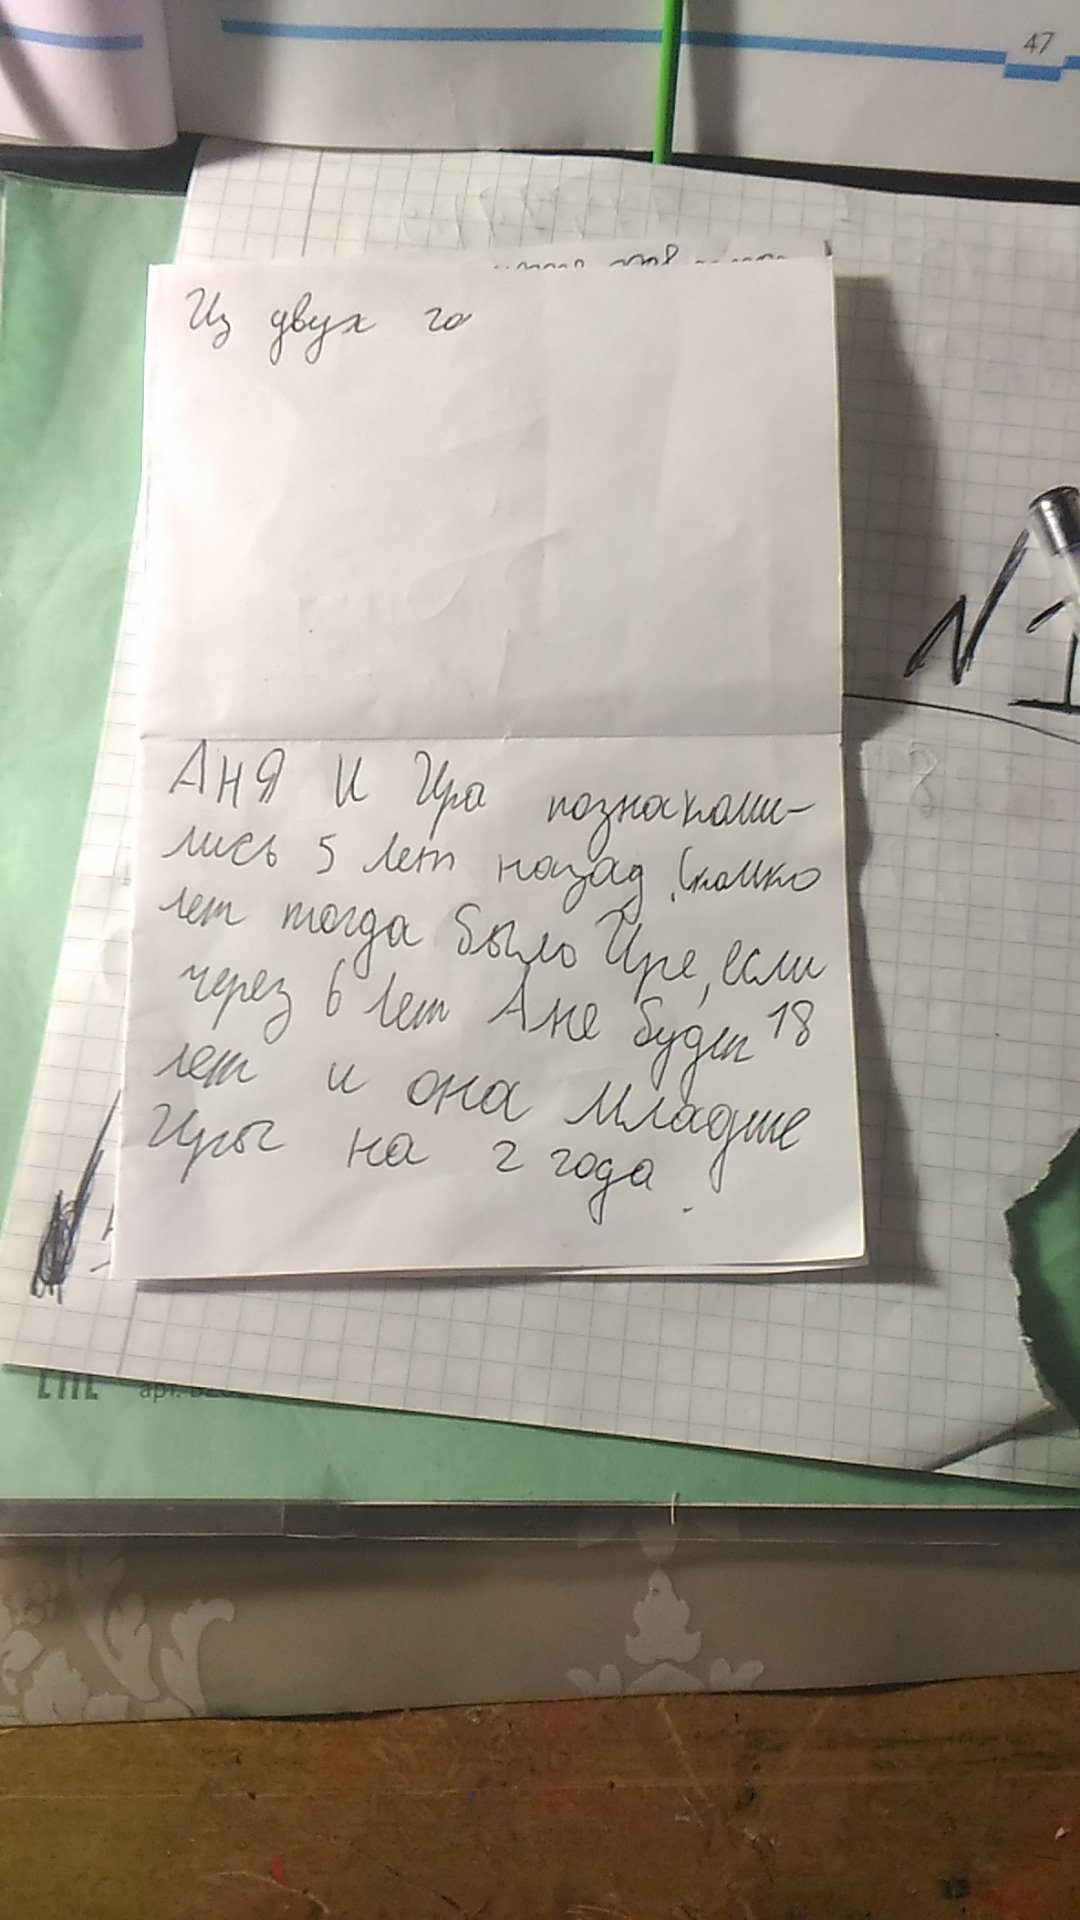 47
Из двух го
N1
Аня и Ира познакоми-
лись 5 лет назад. Сколко
лет тогда было Ире, если
через 6 лет Ане будет 18
лет и она младше
Иры на 2 года.
арт.